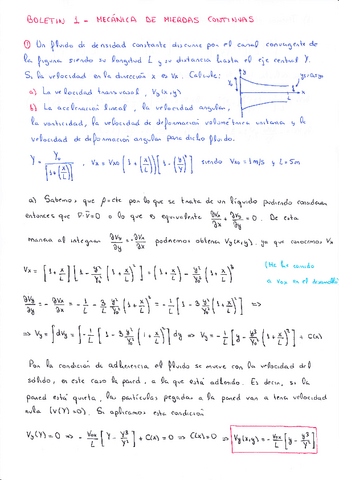 BOLETIN 1 - MECÁNICA DE MIERDAS CONTINUAS
① Un fluido de densidad constante discurre por el canal convergente de
la figura siendo su longitud L y su distancia hasta el eje central Y.
Si la velocidad en la dirección x es Vx. Calcule:
a) La velocidad transversal, Vy(x,y)
b) La aceleración lineal, la velocidad angular,
la vorticidad, la velocidad de deformación volumétrica unitaria y la
velocidad de deformación angular para dicho fluido.
Y = Y₀/√(1+x/L) , Vx = Vx0 [1+(x/L)] [1-(y/Y)²] siendo Vx0 = 1m/s y L = 5m
a) Sabemos que ρ=cte por lo que se trata de un líquido pudiendo considerar
entonces que ∇·v̄=0 o lo que es equivalente ∂Vx/∂x + ∂Vy/∂y = 0. De esta
manera al integrar ∂Vy/∂y = -∂Vx/∂x podremos obtener Vy(x,y), ya que conocemos Vx
Vx = [1+x/L] [1 - y²/Y₀² (1+x/L)] = (1+x/L) - y²/Y₀² (1+x/L)²
(Me he comido
a Vx0 en el desarrollo)
∂Vy/∂y = -∂Vx/∂x
=> Vy = ∫dVy =
Por la condición de adherencia el fluido se mueve con la velocidad del
sólido, en este caso la pared, a la que está adherido. Es decir, si la
pared está quieta, las partículas pegadas a la pared van a tener velocidad
nula (V(Y)=0). Si aplicamos esta condición
Vy(Y)=0 => -Vx0/L [Y - Y³/Y²] + C(x) = 0 => C(x)=0 => Vy(x,y) = -Vx0/L [y - y³/Y²]